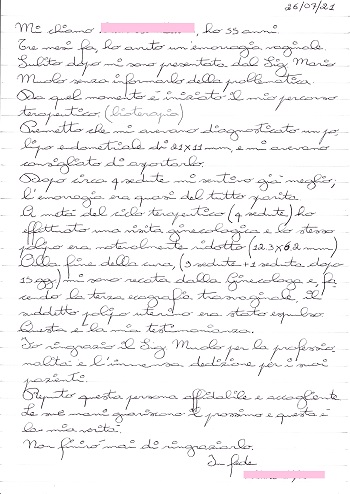 26/07/21
Mi chiamo , ho 55 anni.
Tre mesi fa, ho avuto un'emorragia vaginale.
Subito dopo mi sono presentata dal Sig Mario
Mudo senza informarlo della problematica.
Da quel momento è iniziato il mio percorso
terapeutico. (bioterapia)
Premetto che mi avevano diagnosticato un po
lipo endometriale di 21x11 mm, e mi avevano
consigliato di asportarlo.
Dopo circa 4 sedute mi sentivo già meglio,
l'emorragia era quasi del tutto sparita.
A metà del ciclo terapeutico (4 sedute) ho
effettuato una visita ginecologica e lo stesso
polipo era notevolmente ridotto (12.3x6.2 mm)
Alla fine della cura, (3 sedute + 1 seduta dopo
15 gg) mi sono recata dalla Ginecologa e, fa
cendo la terza ecografia transvaginale il
suddetto polipo uterino era stato espulso.
Questa è la mia testimonianza.
Io ringrazio il Sig Mudo per la professio
nalità e l'immensa dedizione per i suoi
pazienti.
Reputo questa persona affidabile e accogliente
Le sue mani guariscono il prossimo e questa è
la mia verità.
Non finirò mai di ringraziarlo.
In fede